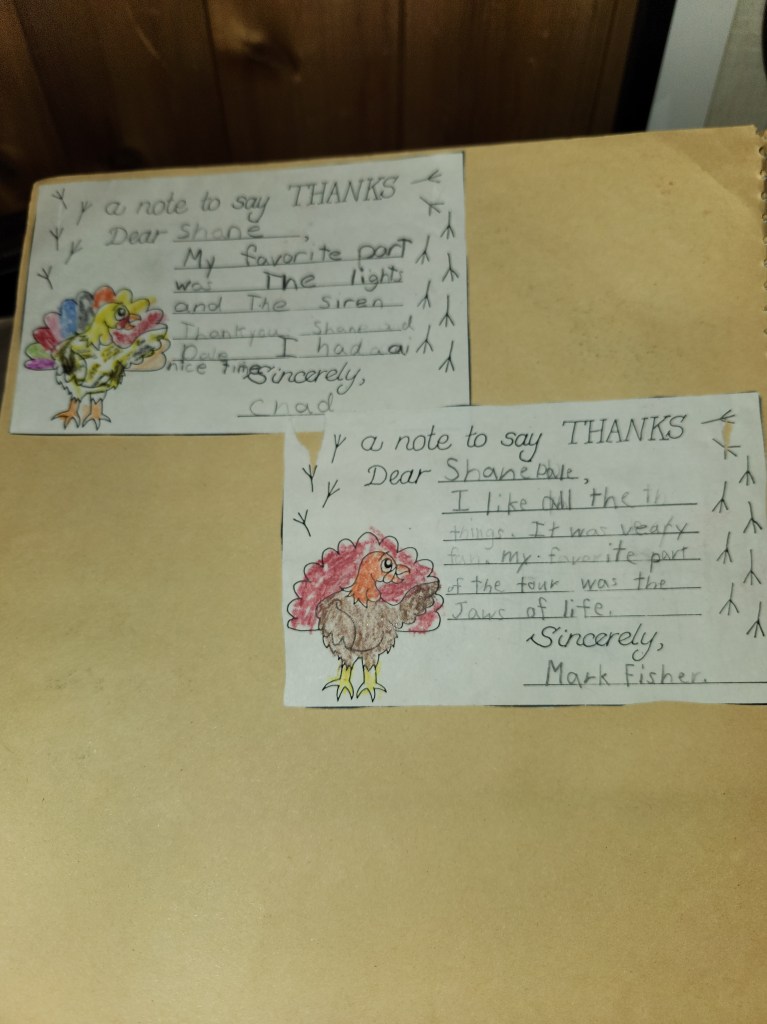 a note to say THANKS
Dear Shane,
My favorite part
was The lights
and The siren
Thankyou Shane and
Dale I had a
nice time
Sincerely,
Chad
a note to say THANKS
Dear Shane Dale,
I like all the
things. It was veary
fun. my favorite part
of the tour was the
Jaws of life.
Sincerely,
Mark Fisher.